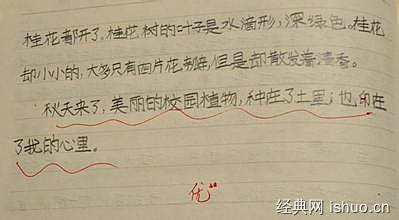 桂花都开了，桂花树的叶子是水滴形，深绿色。桂花
却小小的，大多只有四片花瓣，但是却散发着清香。
秋天来了，美丽的校园植物，种在了土里；也印在
了我的心里。
优
经典网 ishuo.cn